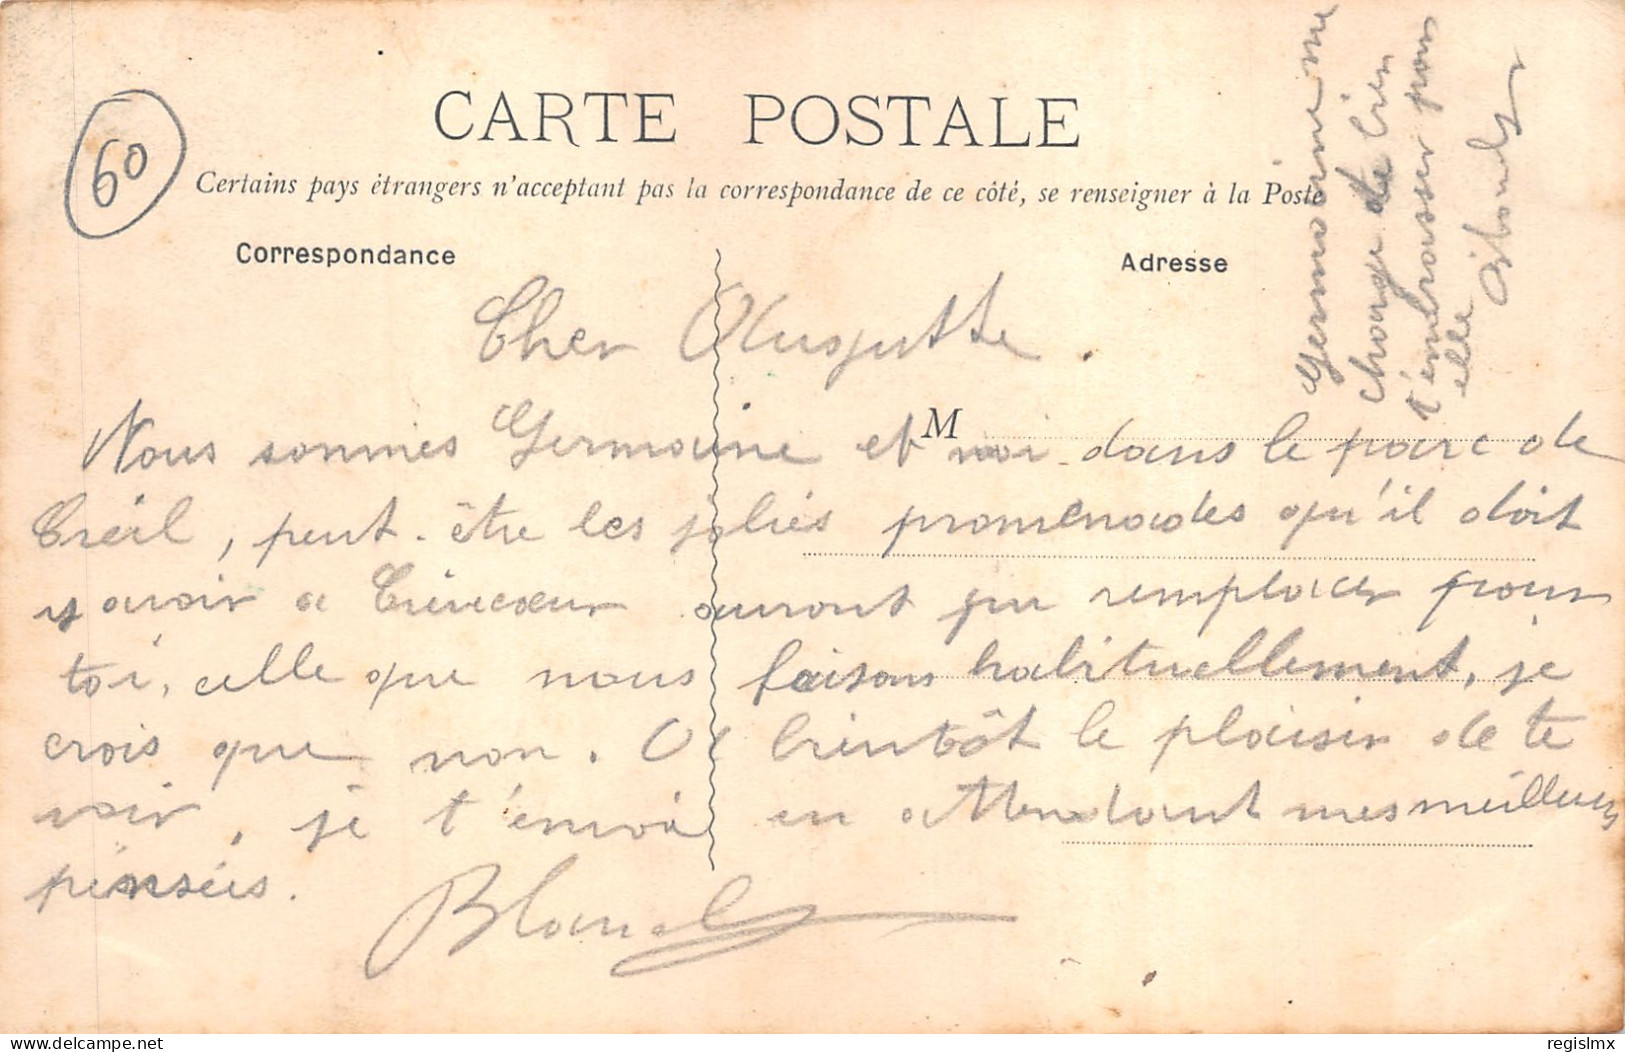 60
CARTE POSTALE
Certains pays étrangers n'acceptant pas la correspondance de ce côté, se renseigner à la Poste
Correspondance
Adresse
M
Cher Auguste.
Nous sommes Germaine et moi dans le parc de
Creil, peut-être les jolies promenades qu'il doit
y avoir a Crèvecœur auront pu remplacer pour
toi, celle que nous faisons habituellement, je
crois que non. A bientôt le plaisir de te
voir, je t'envoi en attendant mes meilleures
pensées.
Blanch
Germaine me
charge de bien
t'embrasser pour
elle
delcampe.net
regislmx